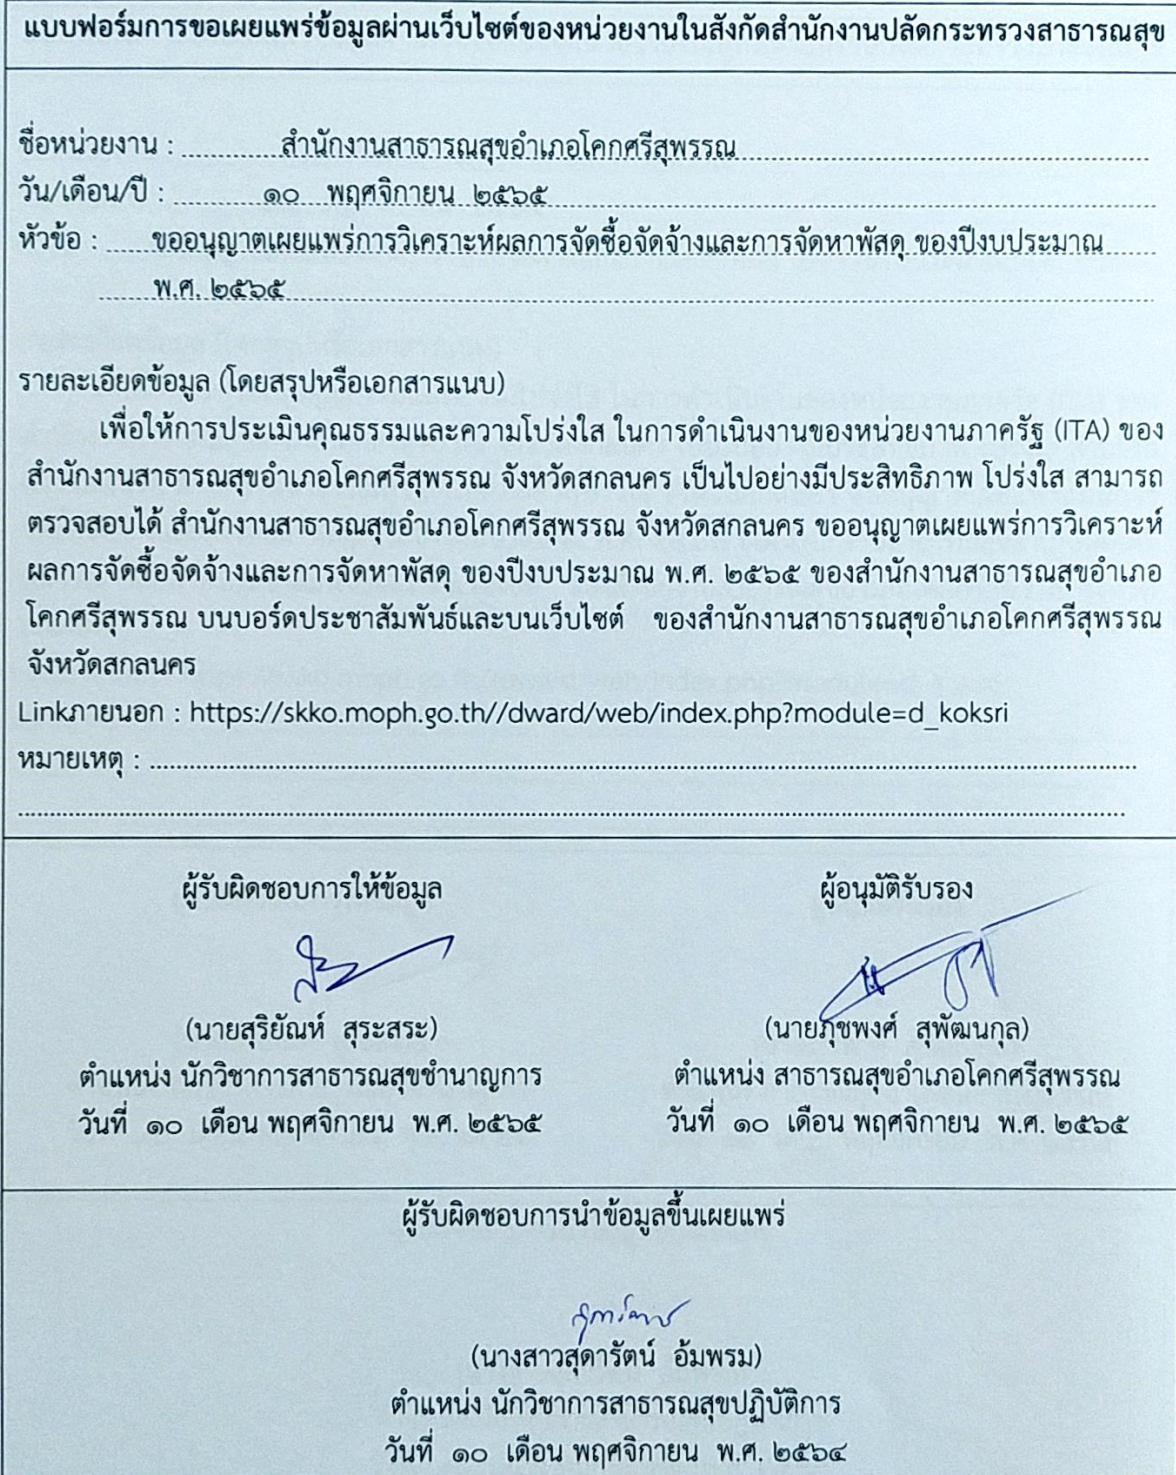 แบบฟอร์มการขอเผยแพร่ข้อมูลผ่านเว็บไซต์ของหน่วยงานในสังกัดสำนักงานปลัดกระทรวงสาธารณสุข
ชื่อหน่วยงาน : สำนักงานสาธารณสุขอำเภอโคกศรีสุพรรณ
วัน/เดือน/ปี : ๑๐ พฤศจิกายน ๒๕๖๕
หัวข้อ : ขออนุญาตเผยแพร่การวิเคราะห์ผลการจัดซื้อจัดจ้างและการจัดหาพัสดุ ของปีงบประมาณ
พ.ศ. ๒๕๖๕
รายละเอียดข้อมูล (โดยสรุปหรือเอกสารแนบ)
เพื่อให้การประเมินคุณธรรมและความโปร่งใส ในการดำเนินงานของหน่วยงานภาครัฐ (ITA) ของ
สำนักงานสาธารณสุขอำเภอโคกศรีสุพรรณ จังหวัดสกลนคร เป็นไปอย่างมีประสิทธิภาพ โปร่งใส สามารถ
ตรวจสอบได้ สำนักงานสาธารณสุขอำเภอโคกศรีสุพรรณ จังหวัดสกลนคร ขออนุญาตเผยแพร่การวิเคราะห์
ผลการจัดซื้อจัดจ้างและการจัดหาพัสดุ ของปีงบประมาณ พ.ศ. ๒๕๖๕ ของสำนักงานสาธารณสุขอำเภอ
โคกศรีสุพรรณ บนบอร์ดประชาสัมพันธ์และบนเว็บไซต์ ของสำนักงานสาธารณสุขอำเภอโคกศรีสุพรรณ
จังหวัดสกลนคร
Linkภายนอก : https://skko.moph.go.th//dward/web/index.php?module=d_koksri
หมายเหตุ :
ผู้รับผิดชอบการให้ข้อมูล
(นายสุริยัณห์ สุระสระ)
ตำแหน่ง นักวิชาการสาธารณสุขชำนาญการ
วันที่ ๑๐ เดือน พฤศจิกายน พ.ศ. ๒๕๖๕
ผู้อนุมัติรับรอง
(นายภุชพงศ์ สุพัฒนกุล)
ตำแหน่ง สาธารณสุขอำเภอโคกศรีสุพรรณ
วันที่ ๑๐ เดือน พฤศจิกายน พ.ศ. ๒๕๖๕
ผู้รับผิดชอบการนำข้อมูลขึ้นเผยแพร่
(นางสาวสุดารัตน์ อ้มพรม)
ตำแหน่ง นักวิชาการสาธารณสุขปฏิบัติการ
วันที่ ๑๐ เดือน พฤศจิกายน พ.ศ. ๒๕๖๔